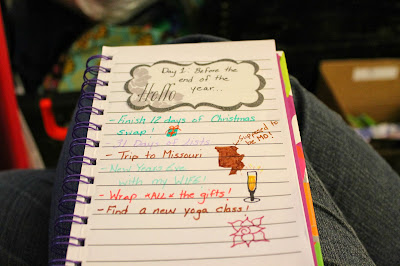 Day 1: Before the
end of the
Hello
year...
- Finish 12 days of Christmas
swap!
- 31 Days of Lists
- Trip to Missouri
supposed to
be MO!
- New Years Eve
with my WIFE!
- Wrap *ALL* the gifts!
- Find a new yoga class!